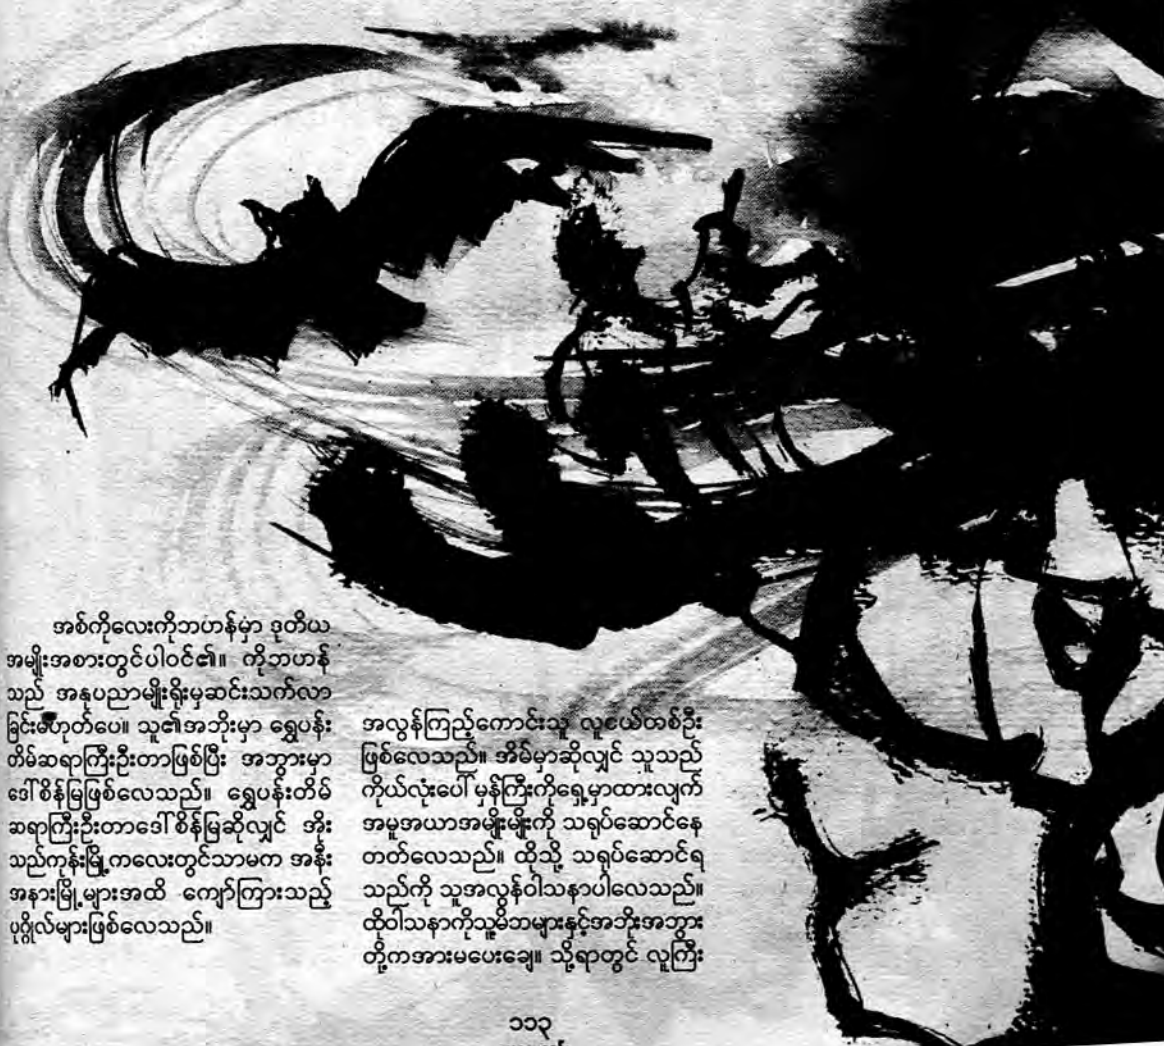 အစ်ကိုလေးကိုဘဟန်မှာ ဒုတိယ
အမျိုးအစားတွင်ပါဝင်၏။ ကိုဘဟန်
သည် အနုပညာမျိုးရိုးမှဆင်းသက်လာ
ခြင်းမဟုတ်ပေ။ သူ၏အဘိုးမှာ ရွှေပန်း
တိမ်ဆရာကြီးဦးတာဖြစ်ပြီး အဘွားမှာ
ဒေါ်စိန်မြဖြစ်လေသည်။ ရွှေပန်းတိမ်
ဆရာကြီးဦးတာဒေါ်စိန်မြဆိုလျှင် အိုး
သည်ကုန်းမြို့ကလေးတွင်သာမက အနီး
အနားမြို့များအထိ ကျော်ကြားသည့်
ပုဂ္ဂိုလ်များဖြစ်လေသည်။
အလွန်ကြည့်ကောင်းသူ လူငယ်တစ်ဦး
ဖြစ်လေသည်။ အိမ်မှာဆိုလျှင် သူသည်
ကိုယ်လုံးပေါ်မှန်ကြီးကိုရှေ့မှာထားလျက်
အမူအယာအမျိုးမျိုးကို သရုပ်ဆောင်နေ
တတ်လေသည်။ ထိုသို့ သရုပ်ဆောင်ရ
သည်ကို သူအလွန်ဝါသနာပါလေသည်။
ထိုဝါသနာကိုသူ့မိဘများနှင့်အဘိုးအဘွား
တို့ကအားမပေးချေ။ သို့ရာတွင် လူကြီး
၁၁၃